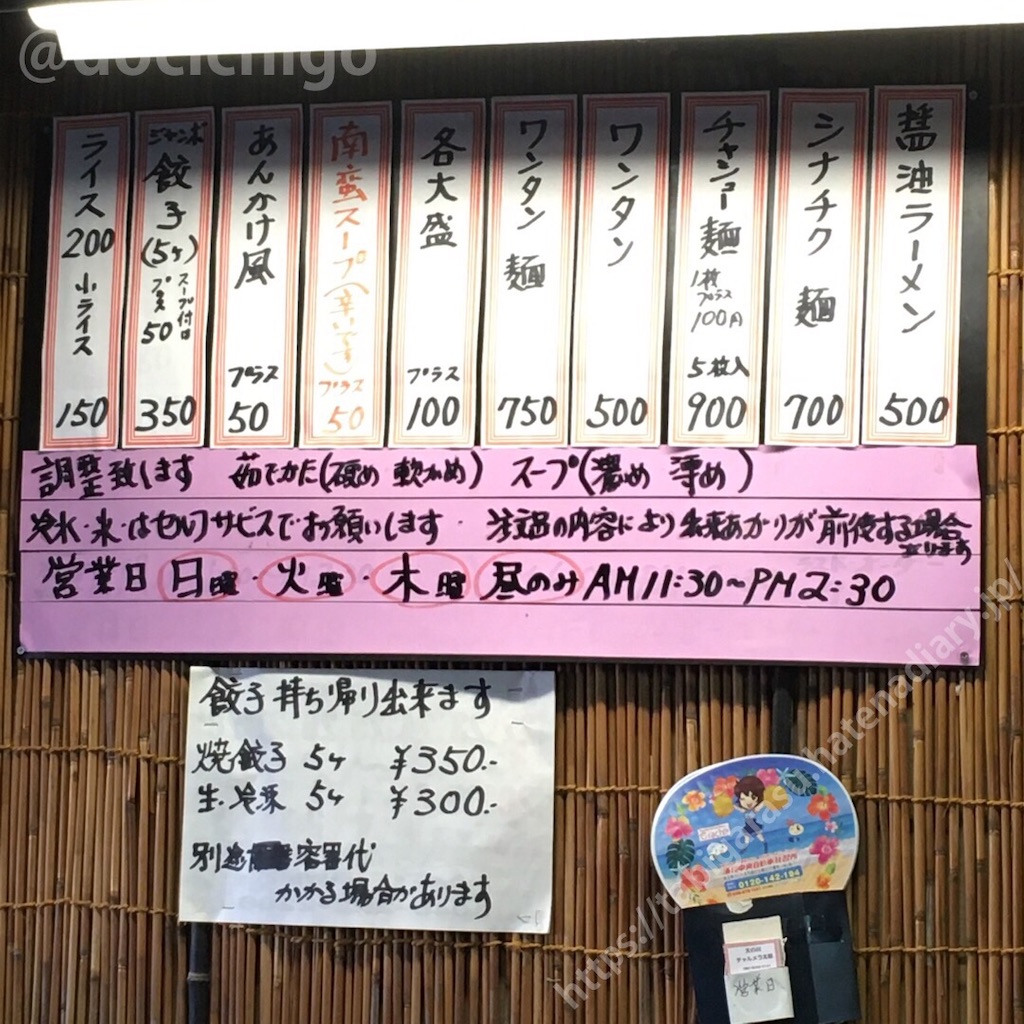 @docichigo
醤油ラーメン 500
シナチク麺 700
チャシュー麺 1枚プラス100円 5枚入 900
ワンタン 500
ワンタン麺 750
各大盛 プラス 100
南蛮スープ(辛い) プラス 50
あんかけ風 プラス 50
ジャンボ餃子(5ケ) スープ付プラス50 350
ライス200 小ライス 150
調整致します 茹でかた(硬め 軟かめ) スープ(濃め 薄め)
冷水・氷・はセルフサービスでお願いします・注文の内容により出来あがりが前後する場合あります
営業日 日曜・火曜・木曜 昼のみ AM11:30~PM2:30
餃子持ち帰り出来ます
焼餃子 5ケ ¥350.-
生・冷凍 5ケ ¥300.-
別途 容器代
かかる場合があります
0120-142-194
営業日
https://tabigarasu.hatenadiary.jp/